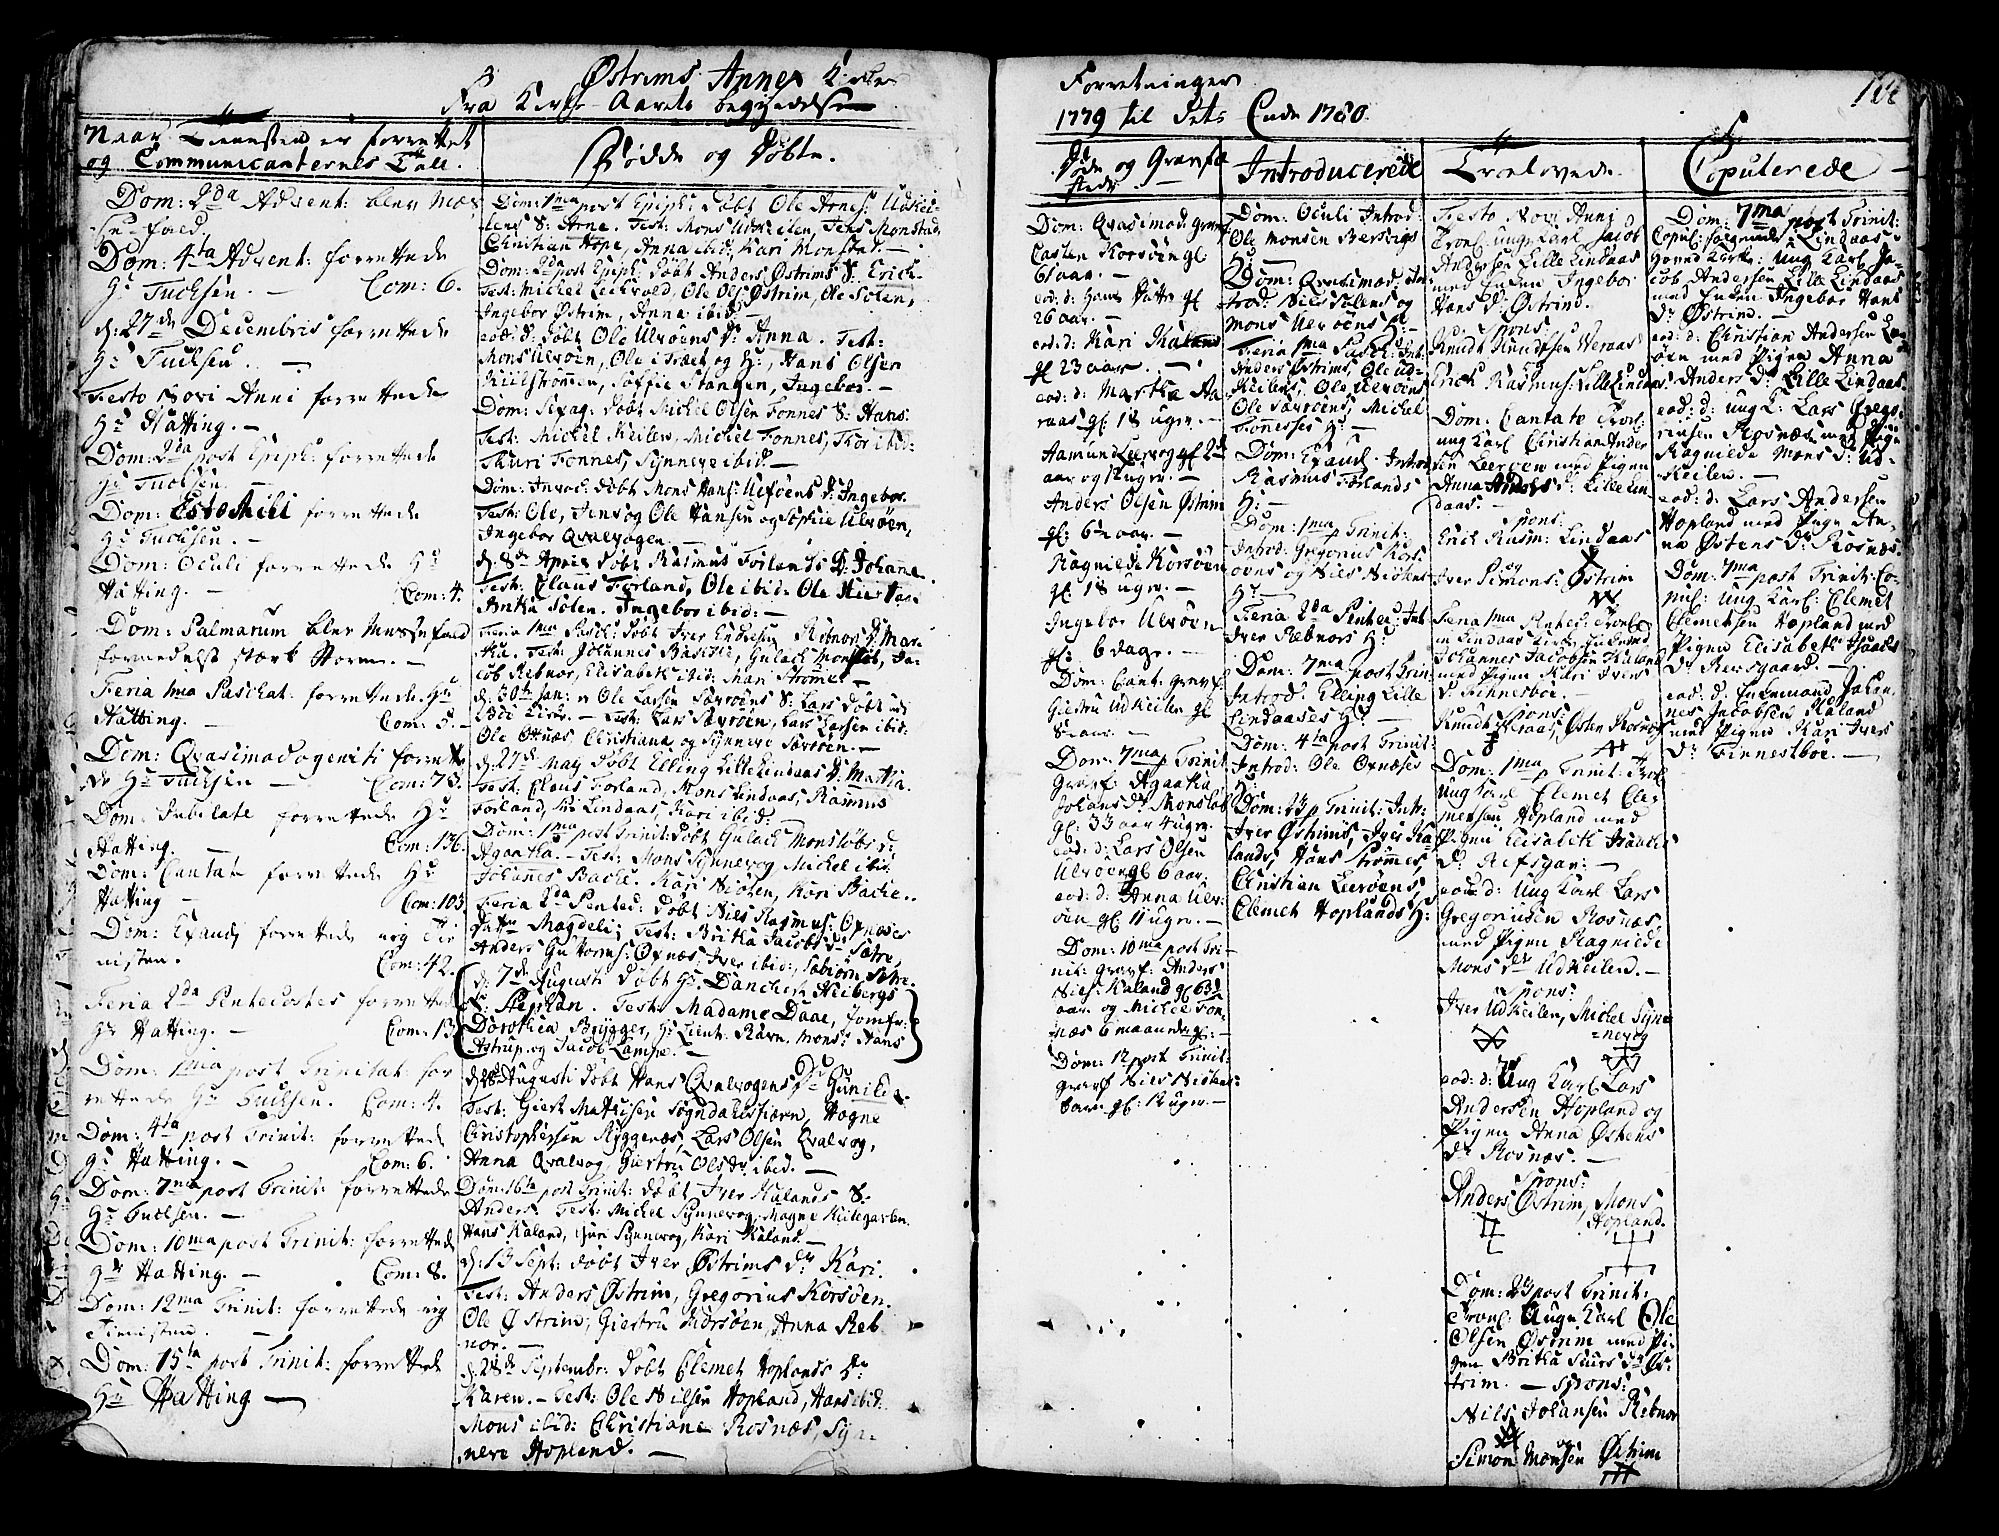 Østrems Annex Kirkes
Fra Kirke-Aarets begyndelse
Naar Tienesten er forrettet
og Communicanternes Tall.
Dom: 2da Advent: blev Mes-
se-fald.
Dom: 4ta Advent: forrettede
Hr Tuchsen. — Com: 6.
d: 27de Decembris forrettede
Hr Tuchsen. —
Festo Novi Anni forrettede
Hr Hatting. —
Dom: 2da post Epiph: forrettede
Hr Tuchsen. —
Dom: Estomihi forrettede
Hr Tuchsen. —
Dom: Oculi forrettede Hr
Hatting. — Com: 4.
Dom: Palmarum blev Messefald
formedelst stærk Storm. —
Feria 1ma Paschat: forrettede Hr
Hatting. — Com: 5.
Dom: Qvasimodogeniti forrette-
de Hr Tuchsen — Com: 73.
Dom: Jubilate forrettede Hr
Hatting. — Com: 136.
Dom: Cantate forrettede Hr
Hatting — Com: 103
Dom: Exaudi forrettede
Com: 42.
Feria 2da Pentecostes forrettede
Hr Hatting. — Com: 13
Dom: 1ma post Trinitat: for
rettede Hr Tuchsen. Com: 4.
Dom: 4ta post Trinit: forrettede
Hr Hatting. — Com: 6.
Dom: 7ma post Trinit: forrettede
Hr Tuchsen. —
Dom: 10ma post Trinit: forrettede
Hr Hatting. — Com: 8.
Dom: 12ma Trinit: forrettede
Dom: 15ta post Trinit: forrettede
Hr Hatting —
Fødde og Døbte.
Dom: 1ma post Epiph: Døbt Ole Arnes: Udkei-
lens S: Arne. Test: Mons Udkeilen, Jens Monstad
Christian Hope, Anna ibid: Kari Monstad. —
Dom: 2da post Epiph: Døbt Anders Østrims S: Erich.
Test: Michel Leckvold, Ole Ols: Østrim, Ole Solen,
Ingebor Østrim, Anna ibid: —
eod: d: Døbt Ole Ulvøens Dr: Anna. Test:
Mons Ulvøen, Ole Træet og Hu:, Hans Olsen
Kiilstrømen, Soffie Stangen, Ingebor. —
Dom: Sexag: Døbt Michel Olsen Fonnes S: Hans.
Test: Michel Keilen, Michel Fonnes, Thor ibid:
Thuri Fonnes, Synneve ibid. —
Dom: Invoc: Døbt Mons Hans: Ulvøens D: Ingebor.
Test: Ole, Jens og Ole Hansen og Sophie Ulvøen,
Ingebor Qvalvogen. —
d: 8de April Døbt Rasmus Forlands D: Johane.
Test: Claus Forland, Ole ibid: Ole
Anna Solen. Ingebor ibid: —
Feria 1ma Pasch: Døbt Iver Endresen Rebnors D: Mar-
tha. Test: Johannes Basche, Gulach Monsløb, Ja-
cob Rebnor, Elisabeth ibid: Mari Strømes —
d: 30te Jan: er Ole Larsen Særvøens S: Lars Døbt
Kirke. — Test: Lars Særvøen, Lars Larsen ibid:
Ole Otnæs, Christiana og Synneve Særvøen. —
d: 27de May Døbt Elling Lille Lindaas D: Martha.
Test: Claus Forland, Mons Lindaas, Rasmus
Forland, Lindaas, Kari ibid: —
Dom: 1ma post Trinit: Døbt Gulach Monsløbs D:
Agaatha. — Test: Mons Synnevog, Michel ibid:
Johannes Bache. Kari Nioten, Kari Bache.
Feria 2da Pented: Døbt Niels Rasmus: Oxnæses
Datter Magdeli; Test: Britha Jacobs D: Sætre,
Anders Guttorms: Oxnæs, Iver ibid:, Sæbiørn Sætre.
d: 7de Augusti Døbt Hr Danchert Heibergs
S: Stephan. Test: Madame Daae, Jomfr:
Dorothea Brygger, Hr Lieut. Ravn. Mons: Hans
Astrup og Jacob Lampe. —
Augusti Døbt Hans Qvalvogens Dr Gunilde.
Test: Giert Mathisen Sogndalsfiæren, Hogne
Christophersen Ryggenæs, Lars Olsen Qvalvog,
Anna Qvalvog, Giertru Ols Dr ibid. —
Dom: 16ta post Trinit: Døbt Iver Kalands S:
Anders. Test: Michel Synnevog, Magne Kiilegarden.
Hans Kaland, Guri Synnevog, Kari Kaland. —
d: 13 Sept: Døbt Iver Østrims Dr Kari.
Test: Anders Østrim, Gregorius Korsøen.
Ole Østrim, Giertru Korsøen, Anna Reb-
nor. —
d: 28de Septembr: Døbt Clemet Hoplands Dr
Karen. — Test: Ole Nilsen Hopland, Hans ibid.
Mons ibid: Christiane Rosnæs, Syn-
neve Hopland. —
Forretninger
1779 til Dets Ende 1780.
Døde og Gravfæ-
stede
Dom: Qvasimod: gravf:
Casten Korsøen gl
61 aar. —
eod: d: Hans gl
26 aar. —
eod: d: Kari Kaland
gl 23 aar. —
eod: d: Martha Aa-
raas gl: 18 uger. —
Aamund Leervog gl 2de
aar og uger. —
Anders Olsen Østrim
gl: 62 aar. —
Ragnilde Korsøen
gl: 18 uger. —
Ingebor Ulvøen
gl: 6 dage. —
Dom: Cant. gravf:
Giertru Udkeilen gl
8 aar. —
Dom: 7ma p Trinit:
Gravf: Agaatha
Johans Dr Monsløb
gl: 33 aar 4 uger.
eod: d: Lars Olsen
Ulvøen gl 6 aar.
eod: d: Anna Ulv-
øen gl. 11 uger. —
Dom: 10ma post Tri-
nit: gravf: Anders
Niels: Kaland gl 63
aar og Michel Fon-
næs 6 maaneder gl: —
Dom: 12 post Trinit:
gravf Niels Niøtens
barn gl: 12 uger. —
Introducerede
Dom: Oculi Introd:
Ole Monsen Bervigs
Hu: —
Dom: Qvasimod: In-
trod: Niels Solens og
Mons Ulvøens H: —
Feria 1ma Pasch: Int:
Anders Østrims, Ole Ud-
keilens, Ole Ulvøens
Ole Særvøens, Michel
Fonesses Hr —
Dom: Exaud. Introd
Rasmus Forlands
H: —
Dom: 1ma p Trinit:
Introd: Gregorius Kors-
øens og Niels Niøtens
Hr: —
Feria 2da Pentec: Int
Iver Rebnors H:
Dom: 7ma post Trin:
Introd: Elling Lille
Lindaases H: —
Dom: 4ta post Trinit:
Introd: Ole Oxnæses
H: —
Dom: 23 p Trinit: Intr:
Iver Østrims, Iver Ka-
lands, Hans Strømes,
Christian Leervøens,
Clemet Hoplands H:
Trolovede.
Festo Novi Anni
Trol: unge Karl Jacob
Andersen Lille Lindaas
med Enken Ingebor
Hans D: Østrim.
spons:
Knudt Knudtsen Veraas
og
Erich Rasmus: Lille Lindaas
Dom: Cantate Trol:
ung Karl Christian Ander
sen Leervøen med Pigen
Anna Anders D: Lille Lin
daas.
spons:
Erich Rasm: Lindaas
og
Iver Simons: Østrim
Feria 1ma Pentec: Trol:
in Lindaas Kirke Enkemd
Johannes Jacobsen Kaland
med Pigen Kari Ivers
D: Finnesboe. —
spons:
Knudt Veraas, Østen Rosnæs
Dom: 1ma p Trinit: Trol
Ung Karl Clemet Cle-
metsen Hopland med
Pigen Elisabeth Isaachs
D: Refsgar: —
eod: d: Ung Karl Lars
Gregoriusen Rosnæs
med Pigen Ragnilde
Mons Dr Udkeilend. —
spons:
Iver Udkeilen, Michel Syn-
nevog
eod: d: Ung Karl Lars
Andersen Hopland og
Pigen Anna Østens
Dr Rosnæs. —
Spons:
Anders Østrim, Mons
Hopland.
Dom: 23 post Trinit:
Trol: Unge Karl Ole
Olsen Østrim med Pi-
gen Britha Siurs Dr Øs-
trim. — spons:
Nils Johansen Rebnor
og
Simon Monsen Østrim
Copulerede
Dom: 7ma post Trinit:
Copul: følgende i Lindaas
Hoved Kirke: Ung Karl Ja-
cob Andersen Lille Lindaas
med Enken Ingebor Hans
Dr Østrim. —
eod: d: Christian Andersen Leer-
øen med Pigen Anna
Anders D: Lille Lindaas.
eod: d: ung K: Lars Grego-
riusen Rosnæs med Pigen
Ragnilde Mons D: Ud-
keilen. —
eod: d: Lars Andersen
Hopland med Pigen An-
na Østens Dr Rosnæs.
Dom: 7ma post Trinit: Co-
pul: Ung Karl: Clemet
Clemetsen Hopland med
Pigen Elisabeth Isaachs
Dr Refsgaard. —
eod: d: Enkemand Johan-
nes Jacobsen Kaland
med Pigen Kari Ivers
Dr Finnesboe. —